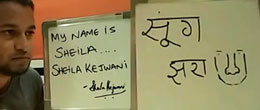 MY NAME IS
SHEILA....
SHEILA KEJWANI
- Sheila Kejwani
सूंग
झरा